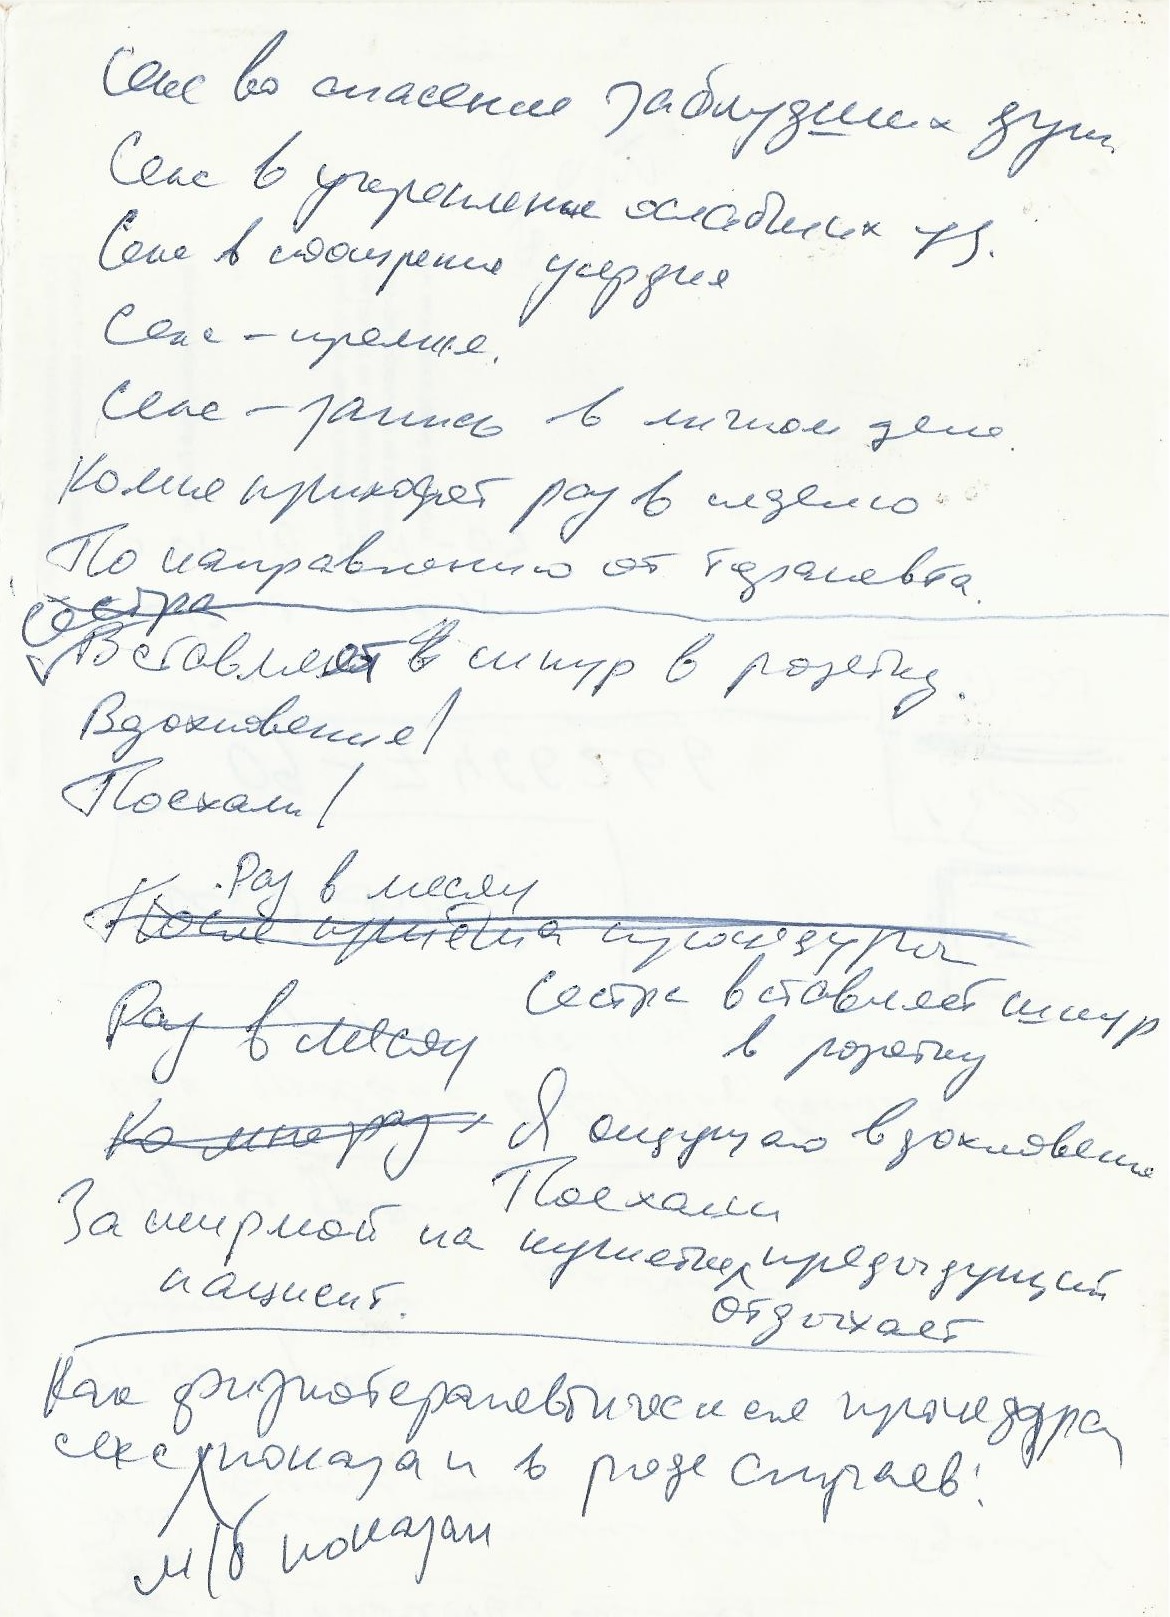 Секс во спасение заблудших душ
Секс в укрепление ослабших уз.
Секс в поощрение усердия
Секс – премия.
Секс – запись в личном деле.
Ко мне приходят раз в неделю
По направлению от терапевта.
сестра
Вставляет шнур в розетку.
Вдохновение!
Поехали!
Раз в месяц
После приёма процедуры
Раз в месяц
Сестра вставляет шнур
в розетку
Ко мне раз
Я ощущаю вдохновение
Поехали
За ширмой на кушетке предыдущий
пациент.
отдыхает
Как физиотерапевтическая процедура,
секс показан в ряде случаев:
м/б показан